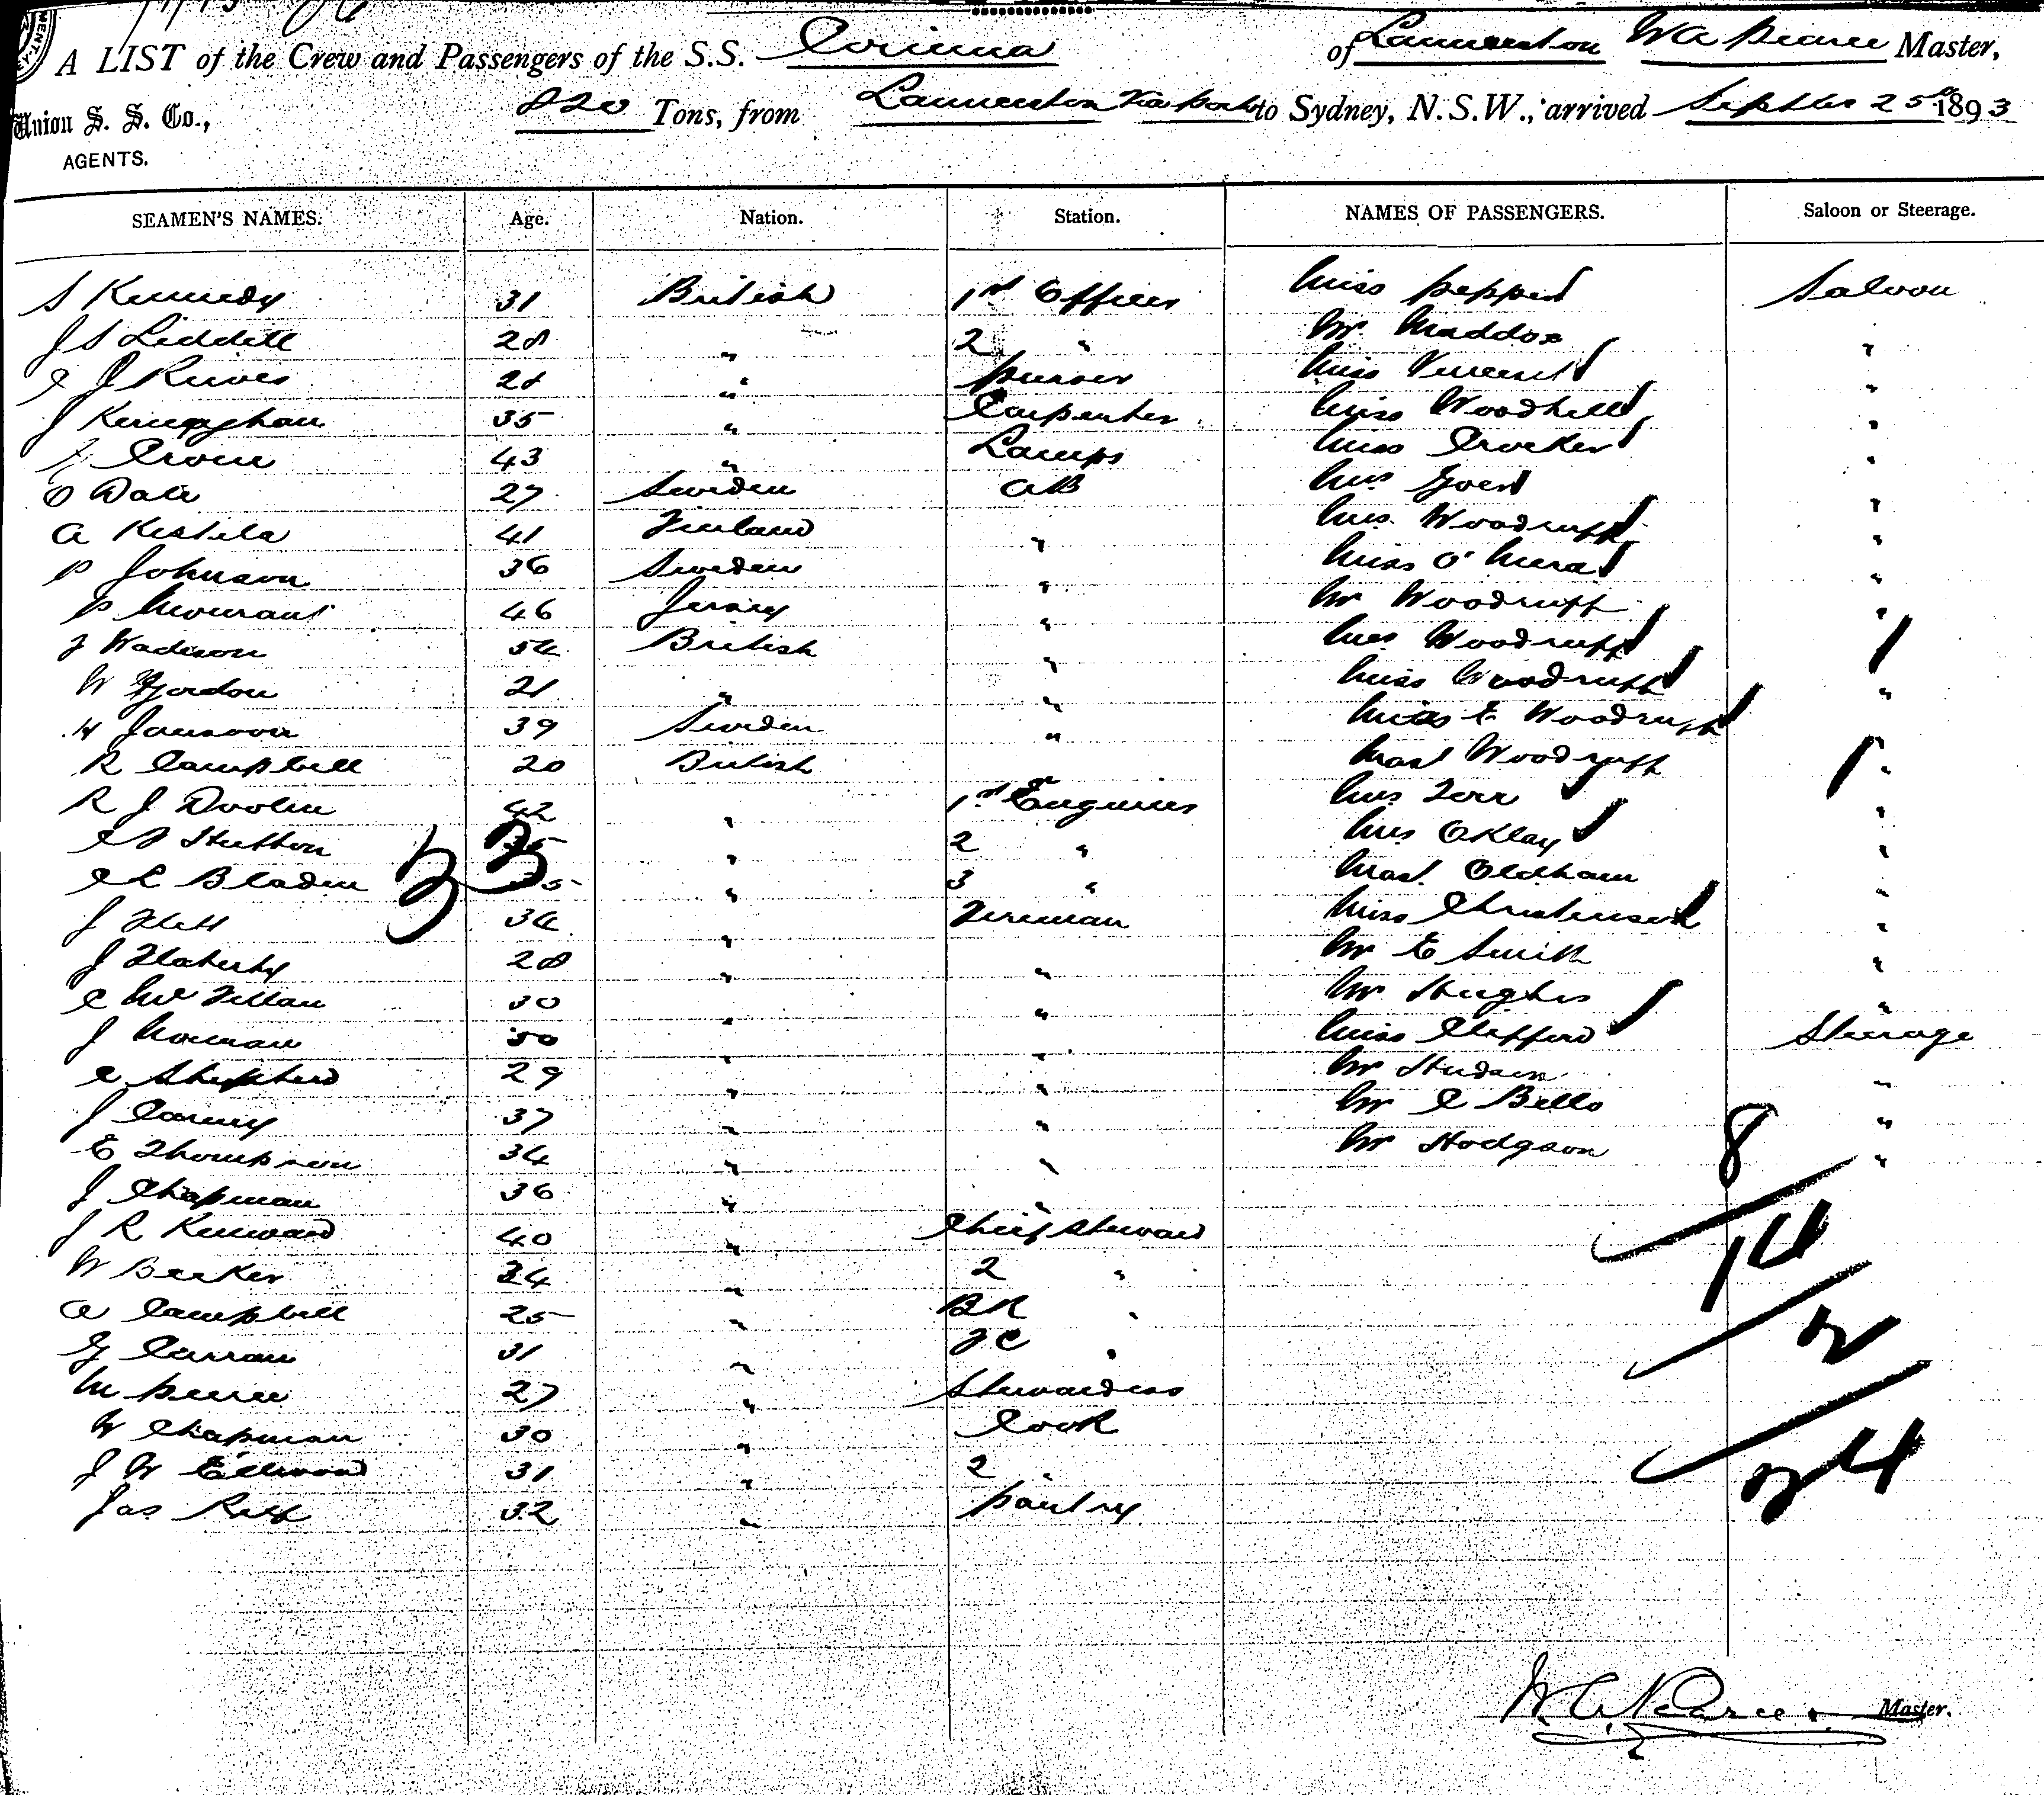 A LIST of the Crew and Passengers of the S.S. Corinna of Launceston W A Pearce Master,
Union S. S. Co., 820 Tons, from Launceston Via Ports to Sydney, N.S.W., arrived Septber 25th 1893
AGENTS.
SEAMEN'S NAMES. Age. Nation. Station. NAMES OF PASSENGERS. Saloon or Steerage.
S Kennedy 31 British 1st Officer Miss Pepper Saloon
J S Liddell 28 " 2 " Mr Maddox "
J Reeves 28 " Purser Miss Vincent "
J 35 " Carpenter Miss Woodhill "
43 " Lamps Miss Crocker "
O 27 Sweden AB Mrs "
A Kestila 41 Finland " Mrs Woodruff "
P Johnson 36 Sweden " Miss O'Mera "
P Mourant 46 Jersey " Mr Woodruff "
54 British " Mrs Woodruff
W Gordon 21 " " Miss Woodruff "
H 39 Sweden " Miss E Woodruff
R Campbell 20 British Mast Woodruff "
R J 42 " 1st Engineer Mrs "
Hutton " 2 " Mrs Oklay "
Bladen " 3 " Mast. Oldham "
J Flett 34 " Fireman Miss Christensen "
J Flaherty 28 " " Mr E Smith "
30 " " Mr Hughes "
J 50 " " Miss Clifford Steerage
Shepherd 29 " " Mr "
J 37 " " Mr C Bello "
E Thompson 34 " " Mr Hodgson "
J Chapman 36 " "
J R Kenward 40 " Chief Steward
W Becker 24 " 2 "
A Campbell 25 " BR "
G Curran 31 " FC "
M 27 " Stewardess
W Chapman 30 " Cook
J W Ellwood 31 " 2 "
Jas 32 " Pantry
33
8
14
2
24
W. A. Pearce Master.